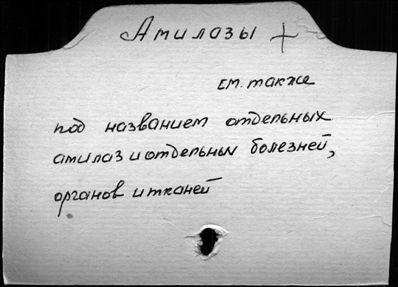 Амилазы +
см. также
под названием отдельных
амилаз и отдельных болезней,
органов и тканей